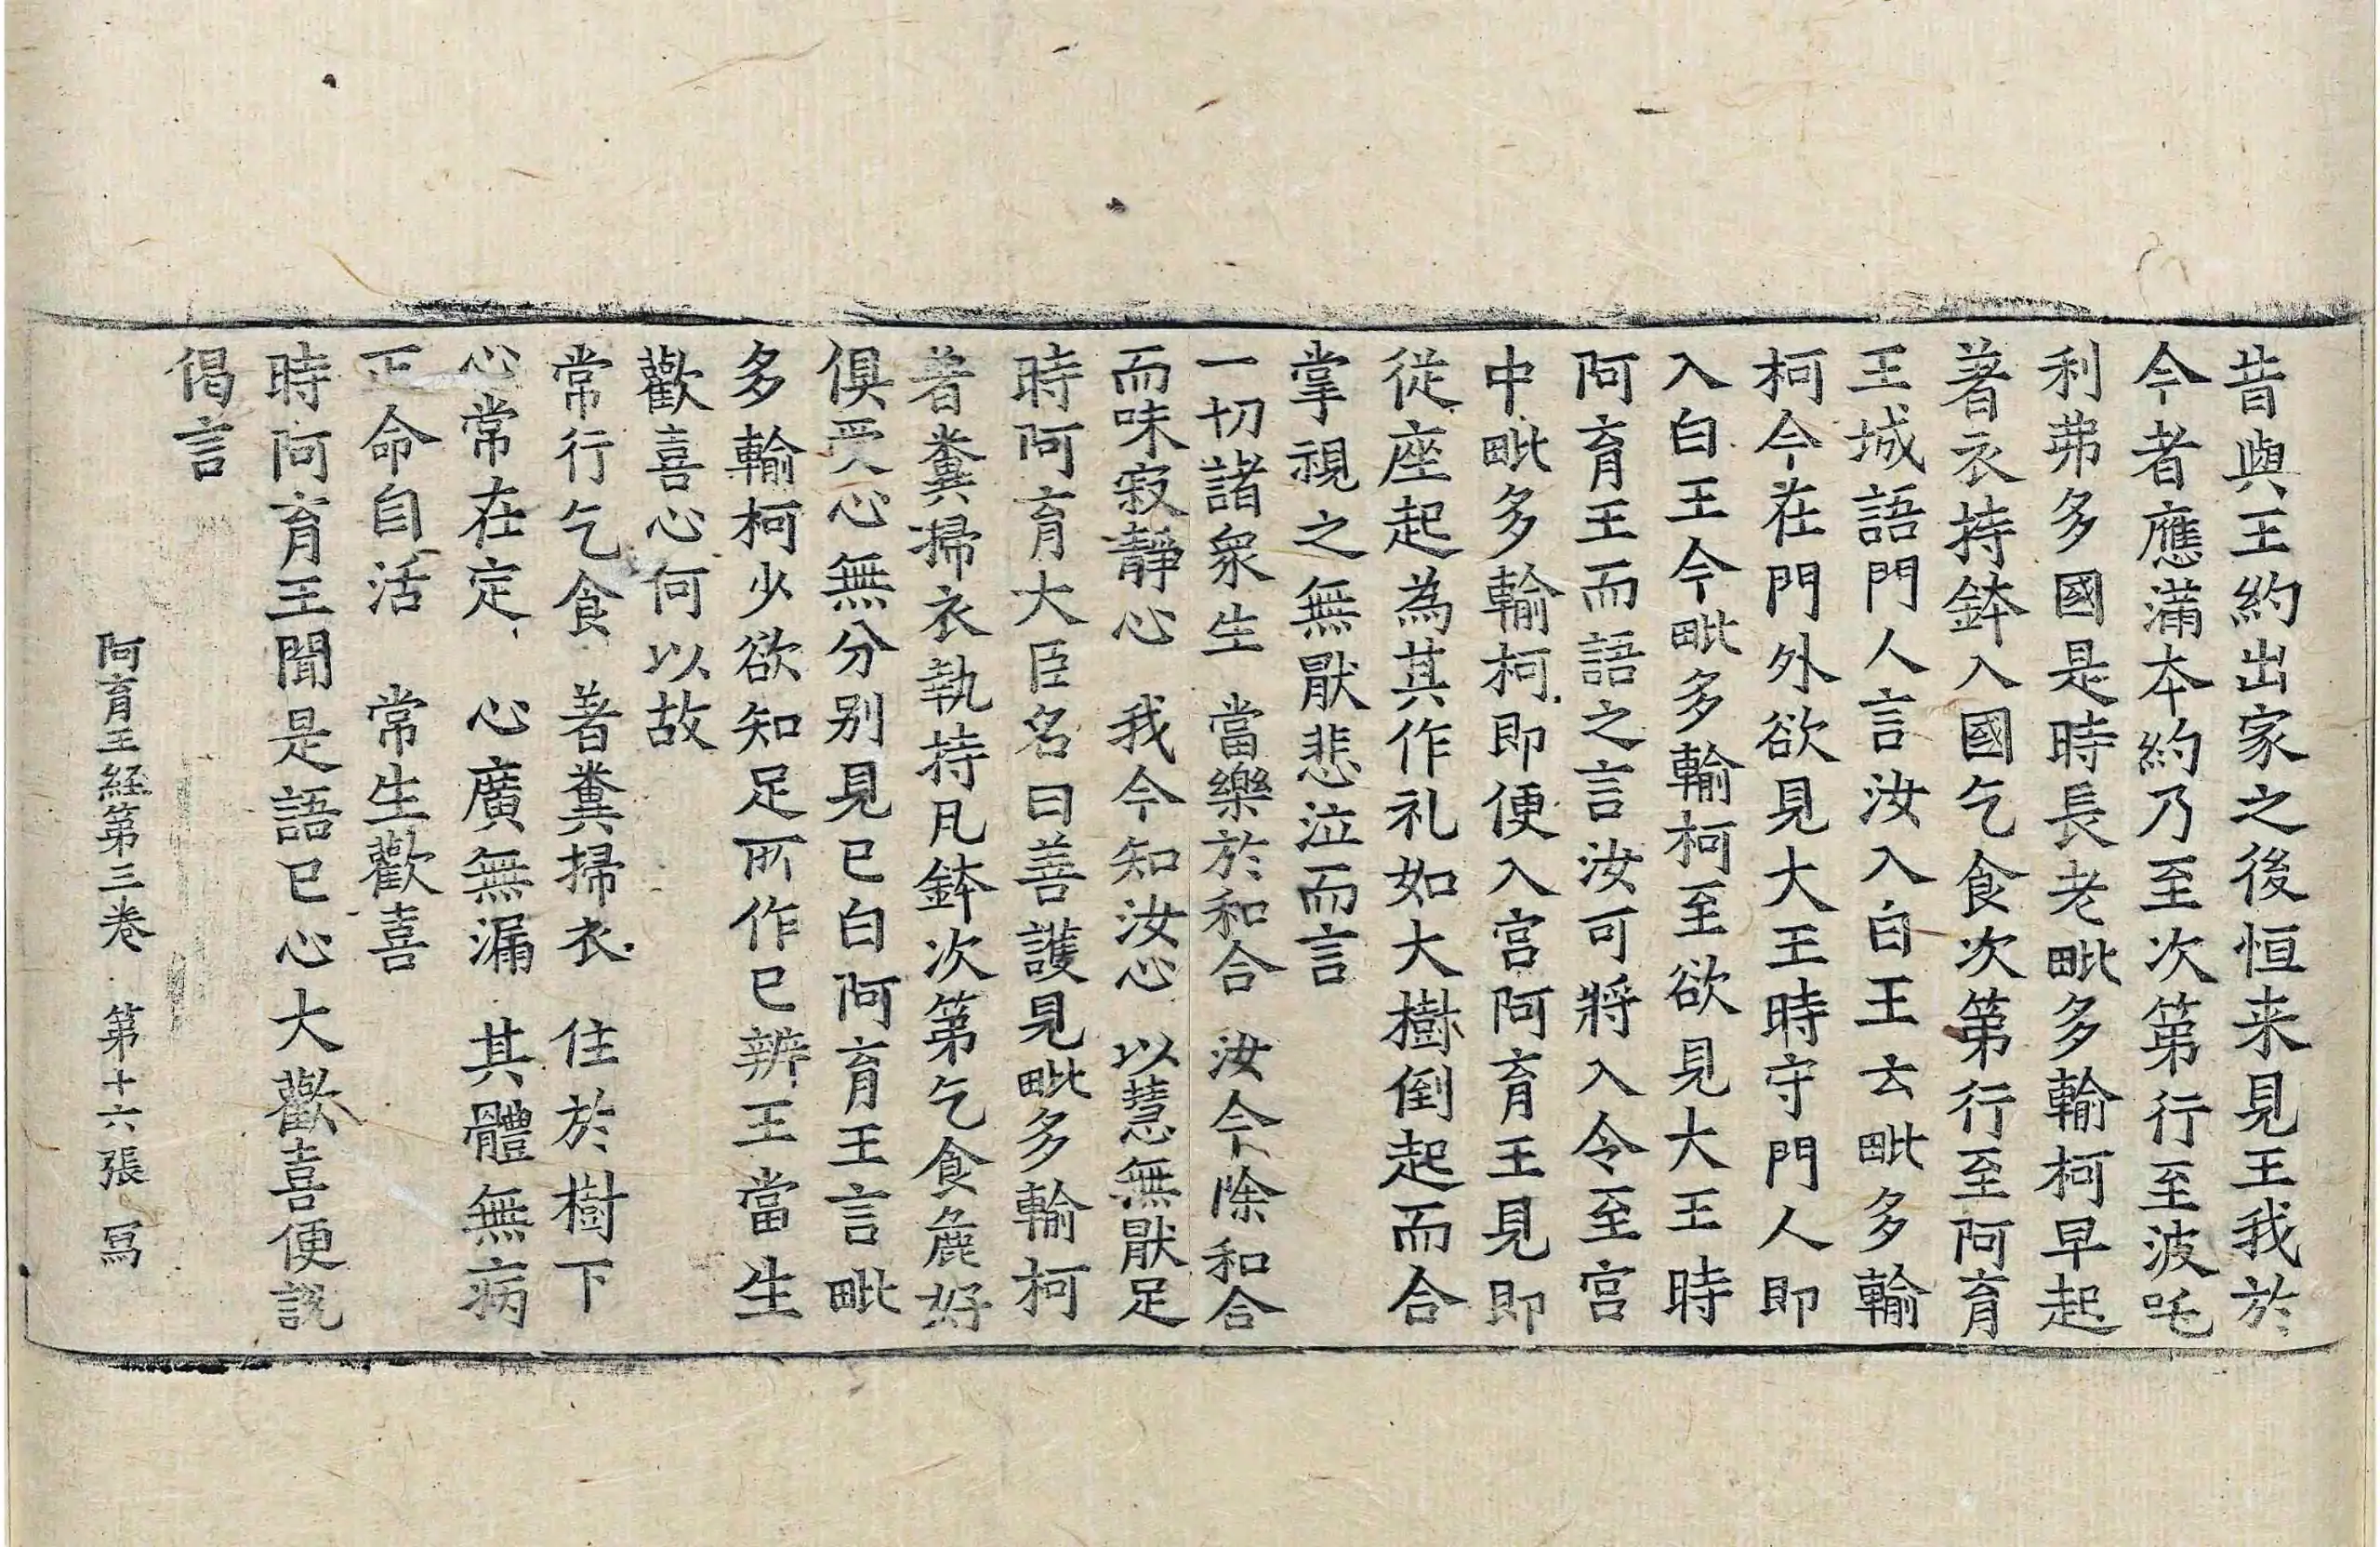 昔與王約出家之後恒来見王我於
今者應滿夲約乃至次第行至波吒
利弗多國是時長老毗多輸柯早起
著衣持鉢入國乞食次第行至阿育
王城語門人言汝入白王去毗多輸
柯今在門外欲見大王時守門人即
入白王今毗多輸柯至欲見大王時
阿育王而語之言汝可將入令至宫
中毗多輸柯即便入宫阿育王見即
従座起為其作礼如大樹倒起而合
掌視之無猒悲泣而言
一切諸衆生　當樂於和合　汝今除和合
而味寂靜心　我今知汝心　以慧無猒足
時阿育大臣名曰善護見毗多輸柯
著糞掃衣執持凡鉢次第乞食麁好
俱受心無分别見已白阿育王言毗
多輸柯少欲知足所作已辨王當生
歡喜心何以故
常行乞食　著糞掃衣　住於樹下
心常在定　心廣無漏　其體無病
正命自活　常生歡喜
時阿育王聞是語已心大歡喜便説
偈言
阿育王経第三巻　第十六張　冩